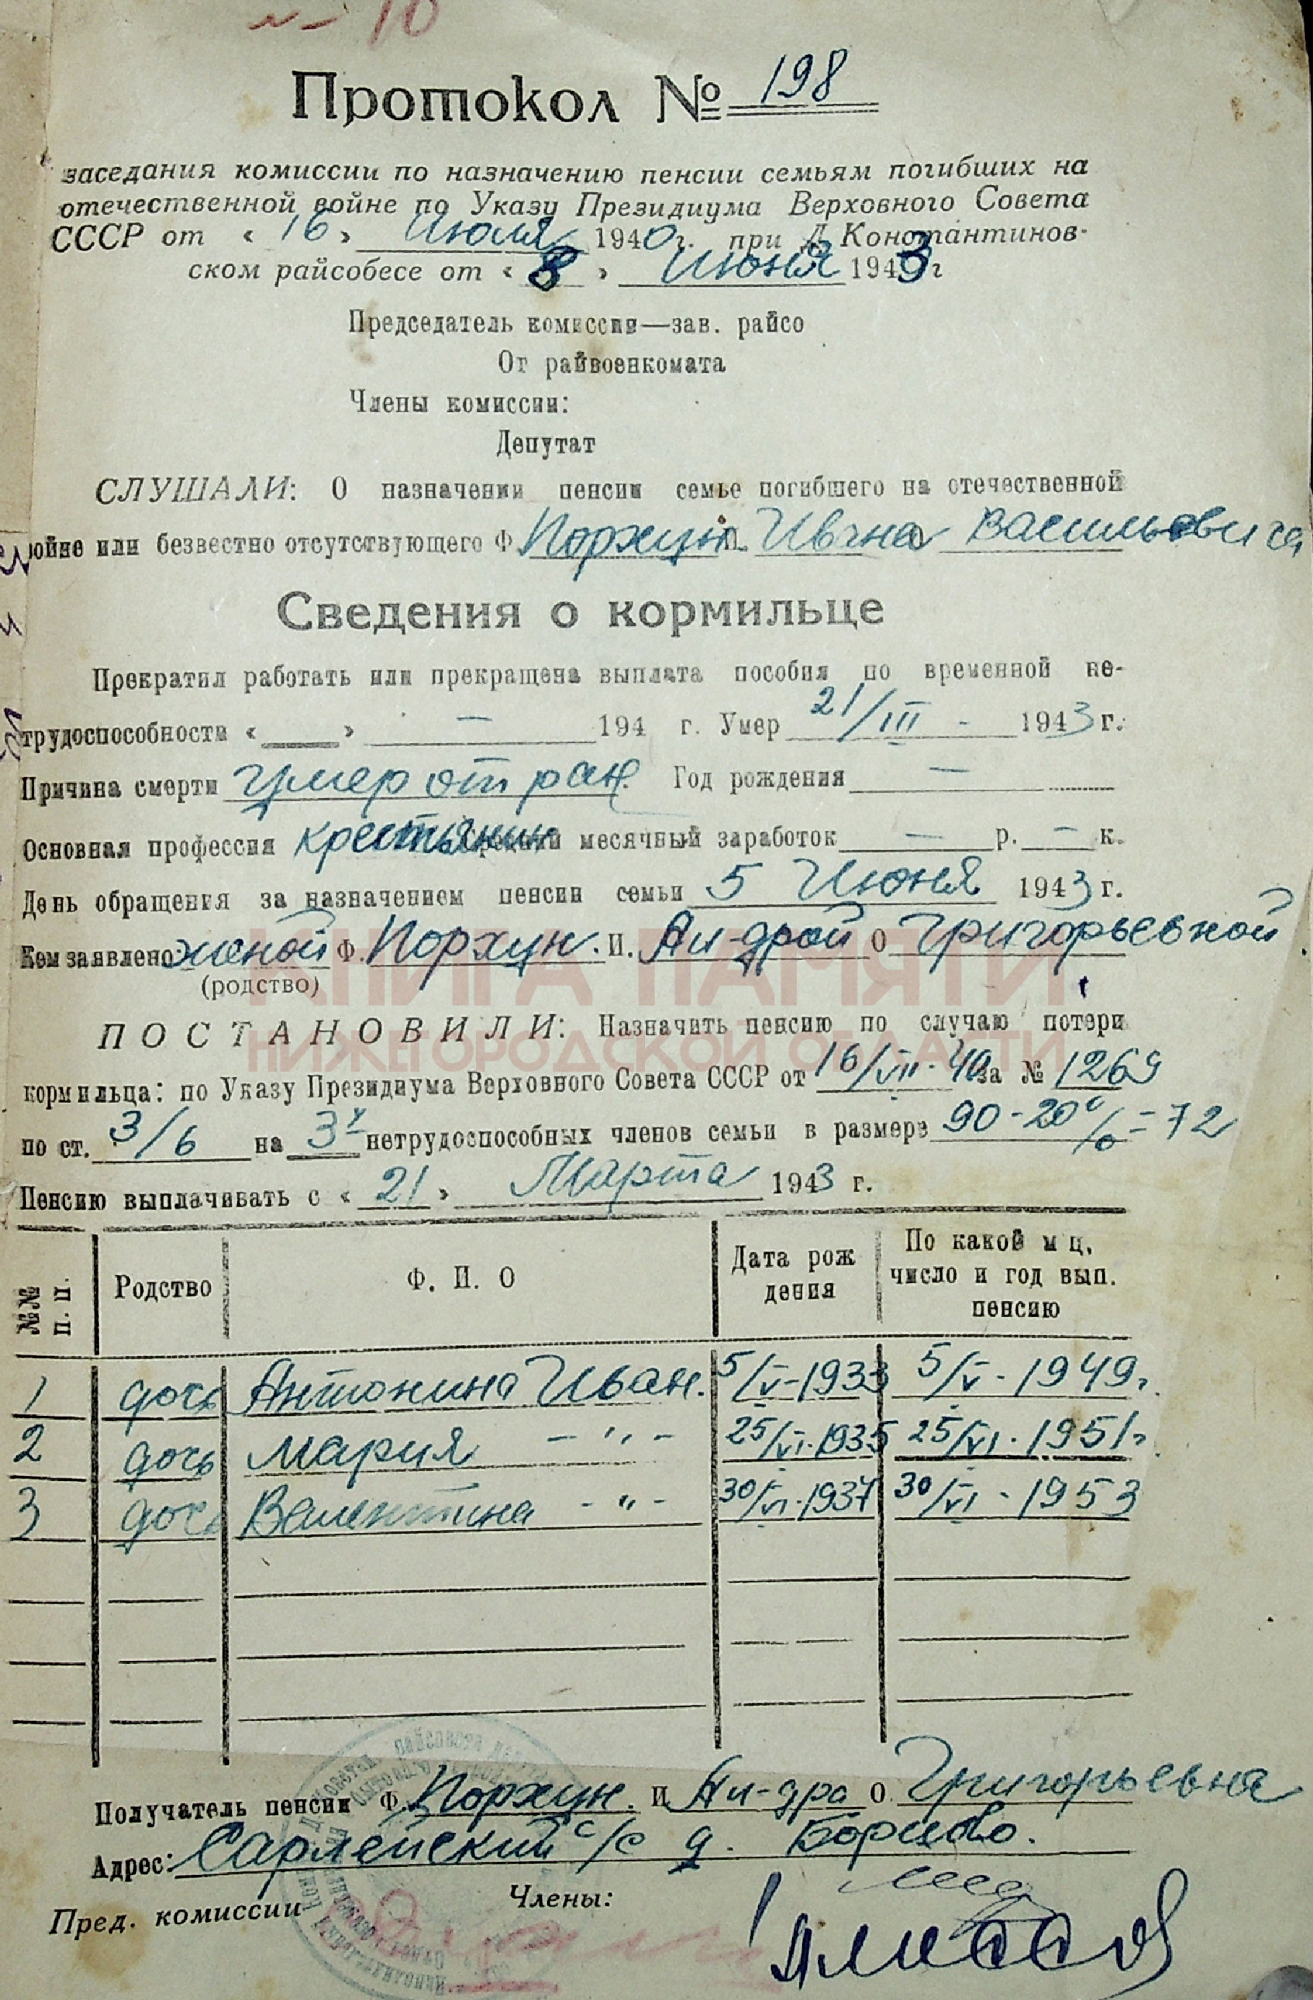 10
Протокол № 198
заседания комиссии по назначению пенсии семьям погибших на
отечественной войне по Указу Президиума Верховного Совета
СССР от « 16 » Июля 1940 г. при Д Константинов-
ском райсобесе от « 8 » Июня 1943 г
Председатель комиссии—зав. райсо
От райвоенкомата
Члены комиссии:
Депутат
СЛУШАЛИ: О назначении пенсии семье погибшего на отечественной
войне или безвестно отсутствующего Ф. Порхун И. Ивана Васильевича
Сведения о кормильце
Прекратил работать или прекращена выплата пособия по временной не-
трудоспособности « » — 194 г. Умер 21/III - 1943 г.
Причина смерти умер от ран. Год рождения —
Основная профессия крестьянин Средний месячный заработок — р. — к.
День обращения за назначением пенсии семьи 5 Июня 1943 г.
Кем заявлено женой Ф. Порхун. И. Ал-дрой О Григорьевной
(родство)
КНИГА ПАМЯТИ
НИЖЕГОРОДСКОЙ ОБЛАСТИ
ПОСТАНОВИЛИ: Назначить пенсию по случаю потери
кормильца: по Указу Президиума Верховного Совета СССР от 16/VII-40 за № 1269
по ст. 3/6 на 3х нетрудоспособных членов семьи в размере 90-20%=72
Пенсию выплачивать с « 21 » Марта 1943 г.
№№ п. п. Родство Ф. И. О Дата рож дения По какой м ц, число и год вып. пенсию
1 дочь Антонина Иван. 5/V-1933 5/V-1949г.
2 дочь Мария -"- 25/VI-1935 25/VI-1951г
3 дочь Валентина -"- 30/VI-1937 30/VI-1953
Получатель пенсии Ф. Порхун. И Ал-дра О Григорьевна
Адрес: Сарлейский с/с д. Борцово.
Пред. комиссии Члены: